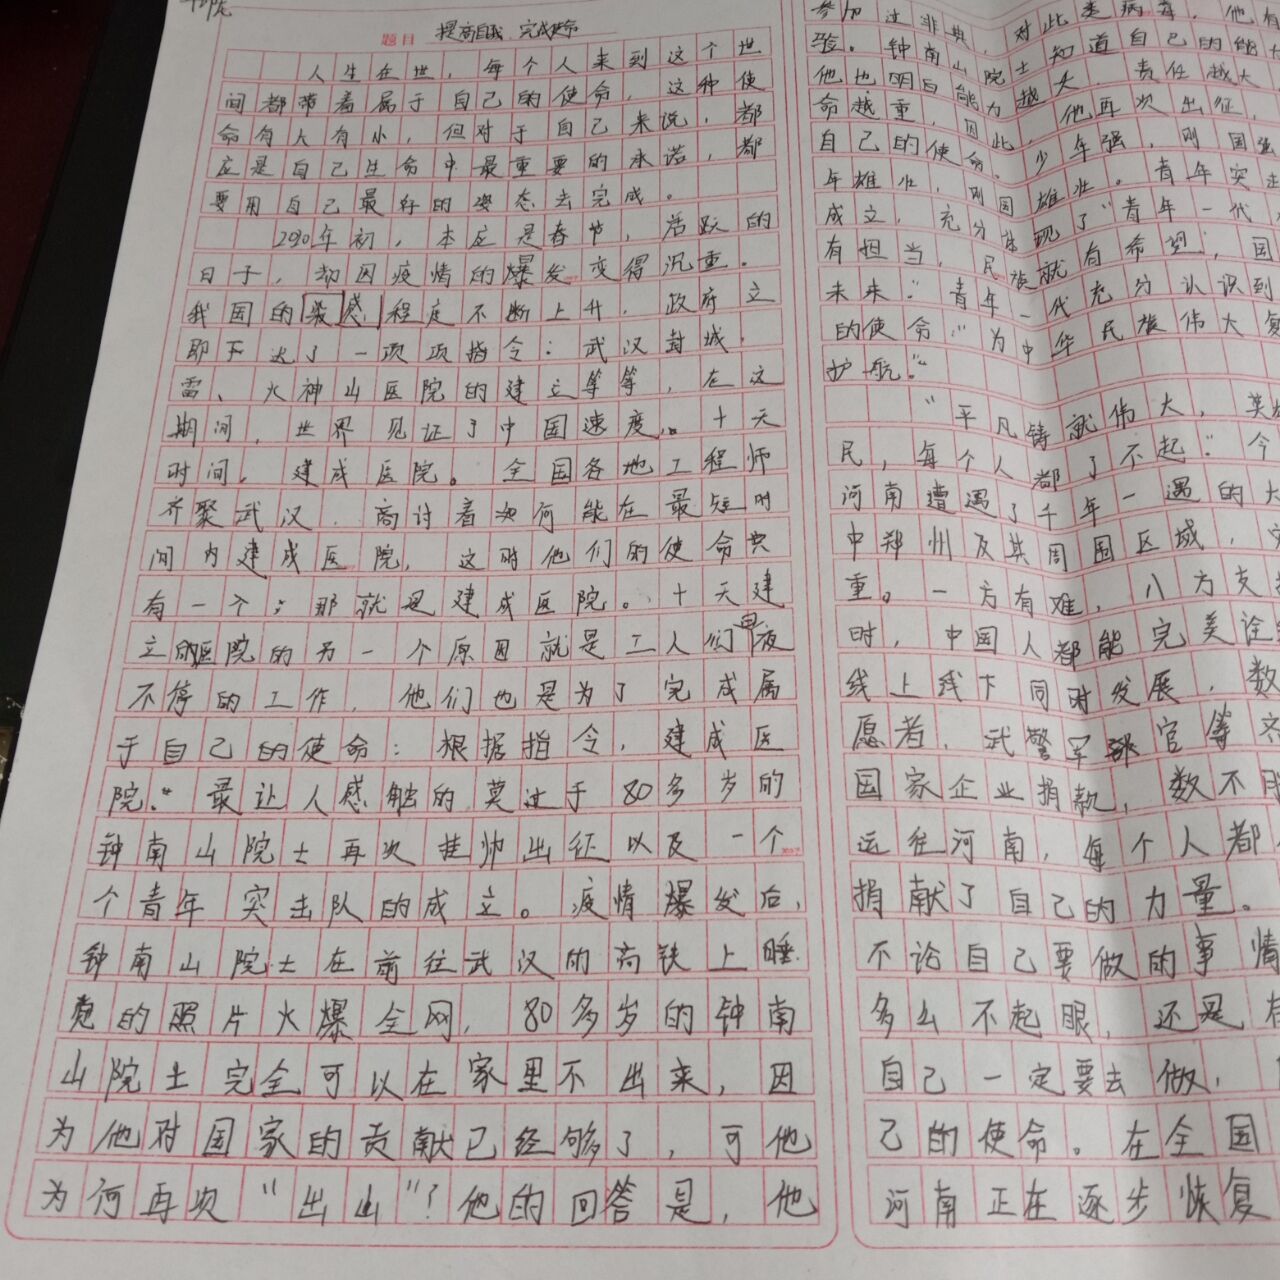 题目 提高自我 完成使命
人生在世，每个人来到这个世
间都带着属于自己的使命，这种使
命有大有小，但对于自己来说，都
应是自己生命中最重要的承诺，都
要用自己最好的姿态去完成。
2020年初，本应是春节，活跃的
日子，却因疫情的爆发变得沉重。
我国的染感程度不断上升，政府立
即下达了一项项指令：武汉封城，
雷、火神山医院的建立等等，在这
期间，世界见证了中国速度。十天
时间，建成医院。全国各地工程师
齐聚武汉，商讨着如何能在最短时
间内建成医院，这时他们的使命只
有一个：那就是建成医院。十天建
立的医院的另一个原因就是工人们日夜
不停的工作，他们也是为了完成属
于自己的使命：根据指令，建成医
院。”最让人感触的莫过于80多岁的
钟南山院士再次挂帅出征以及一个
个青年突击队的成立。疫情爆发后，
钟南山院士在前往武汉的高铁上睡
觉的照片火爆全网，80多岁的钟南
山院士完全可以在家里不出来，因
为他对国家的贡献已经够了，可他
为何再次“出山”？他的回答是，他
参加过非典，对此类病毒，他有
验。钟南山院士知道自己的能
他也明白能力越大 责任越大
命越重，因此，他再次出征，
自己的使命。少年强，则国强
年雄壮，则国雄壮。青年突击
成立，充分体现了“青年一代
有担当，民族就有希望，国
未来。”青年一代充分认识到
的使命“为中华民族伟大复
护航。”
“平凡铸就伟大，英
民，每个人都了不起”今
河南遭遇了千年一遇的大
中郑州及其周围区域，
重。一方有难，八方支
时，中国人都能完美诠
线上线下同时发展，数
愿者，武警军部官等齐
国家企业捐款，数不胜
运往河南，每个人都
捐献了自己的力量。
不论自己要做的事情
多么不起眼，还是有
自己一定要去做，
己的使命。在全国
河南正在逐步恢复